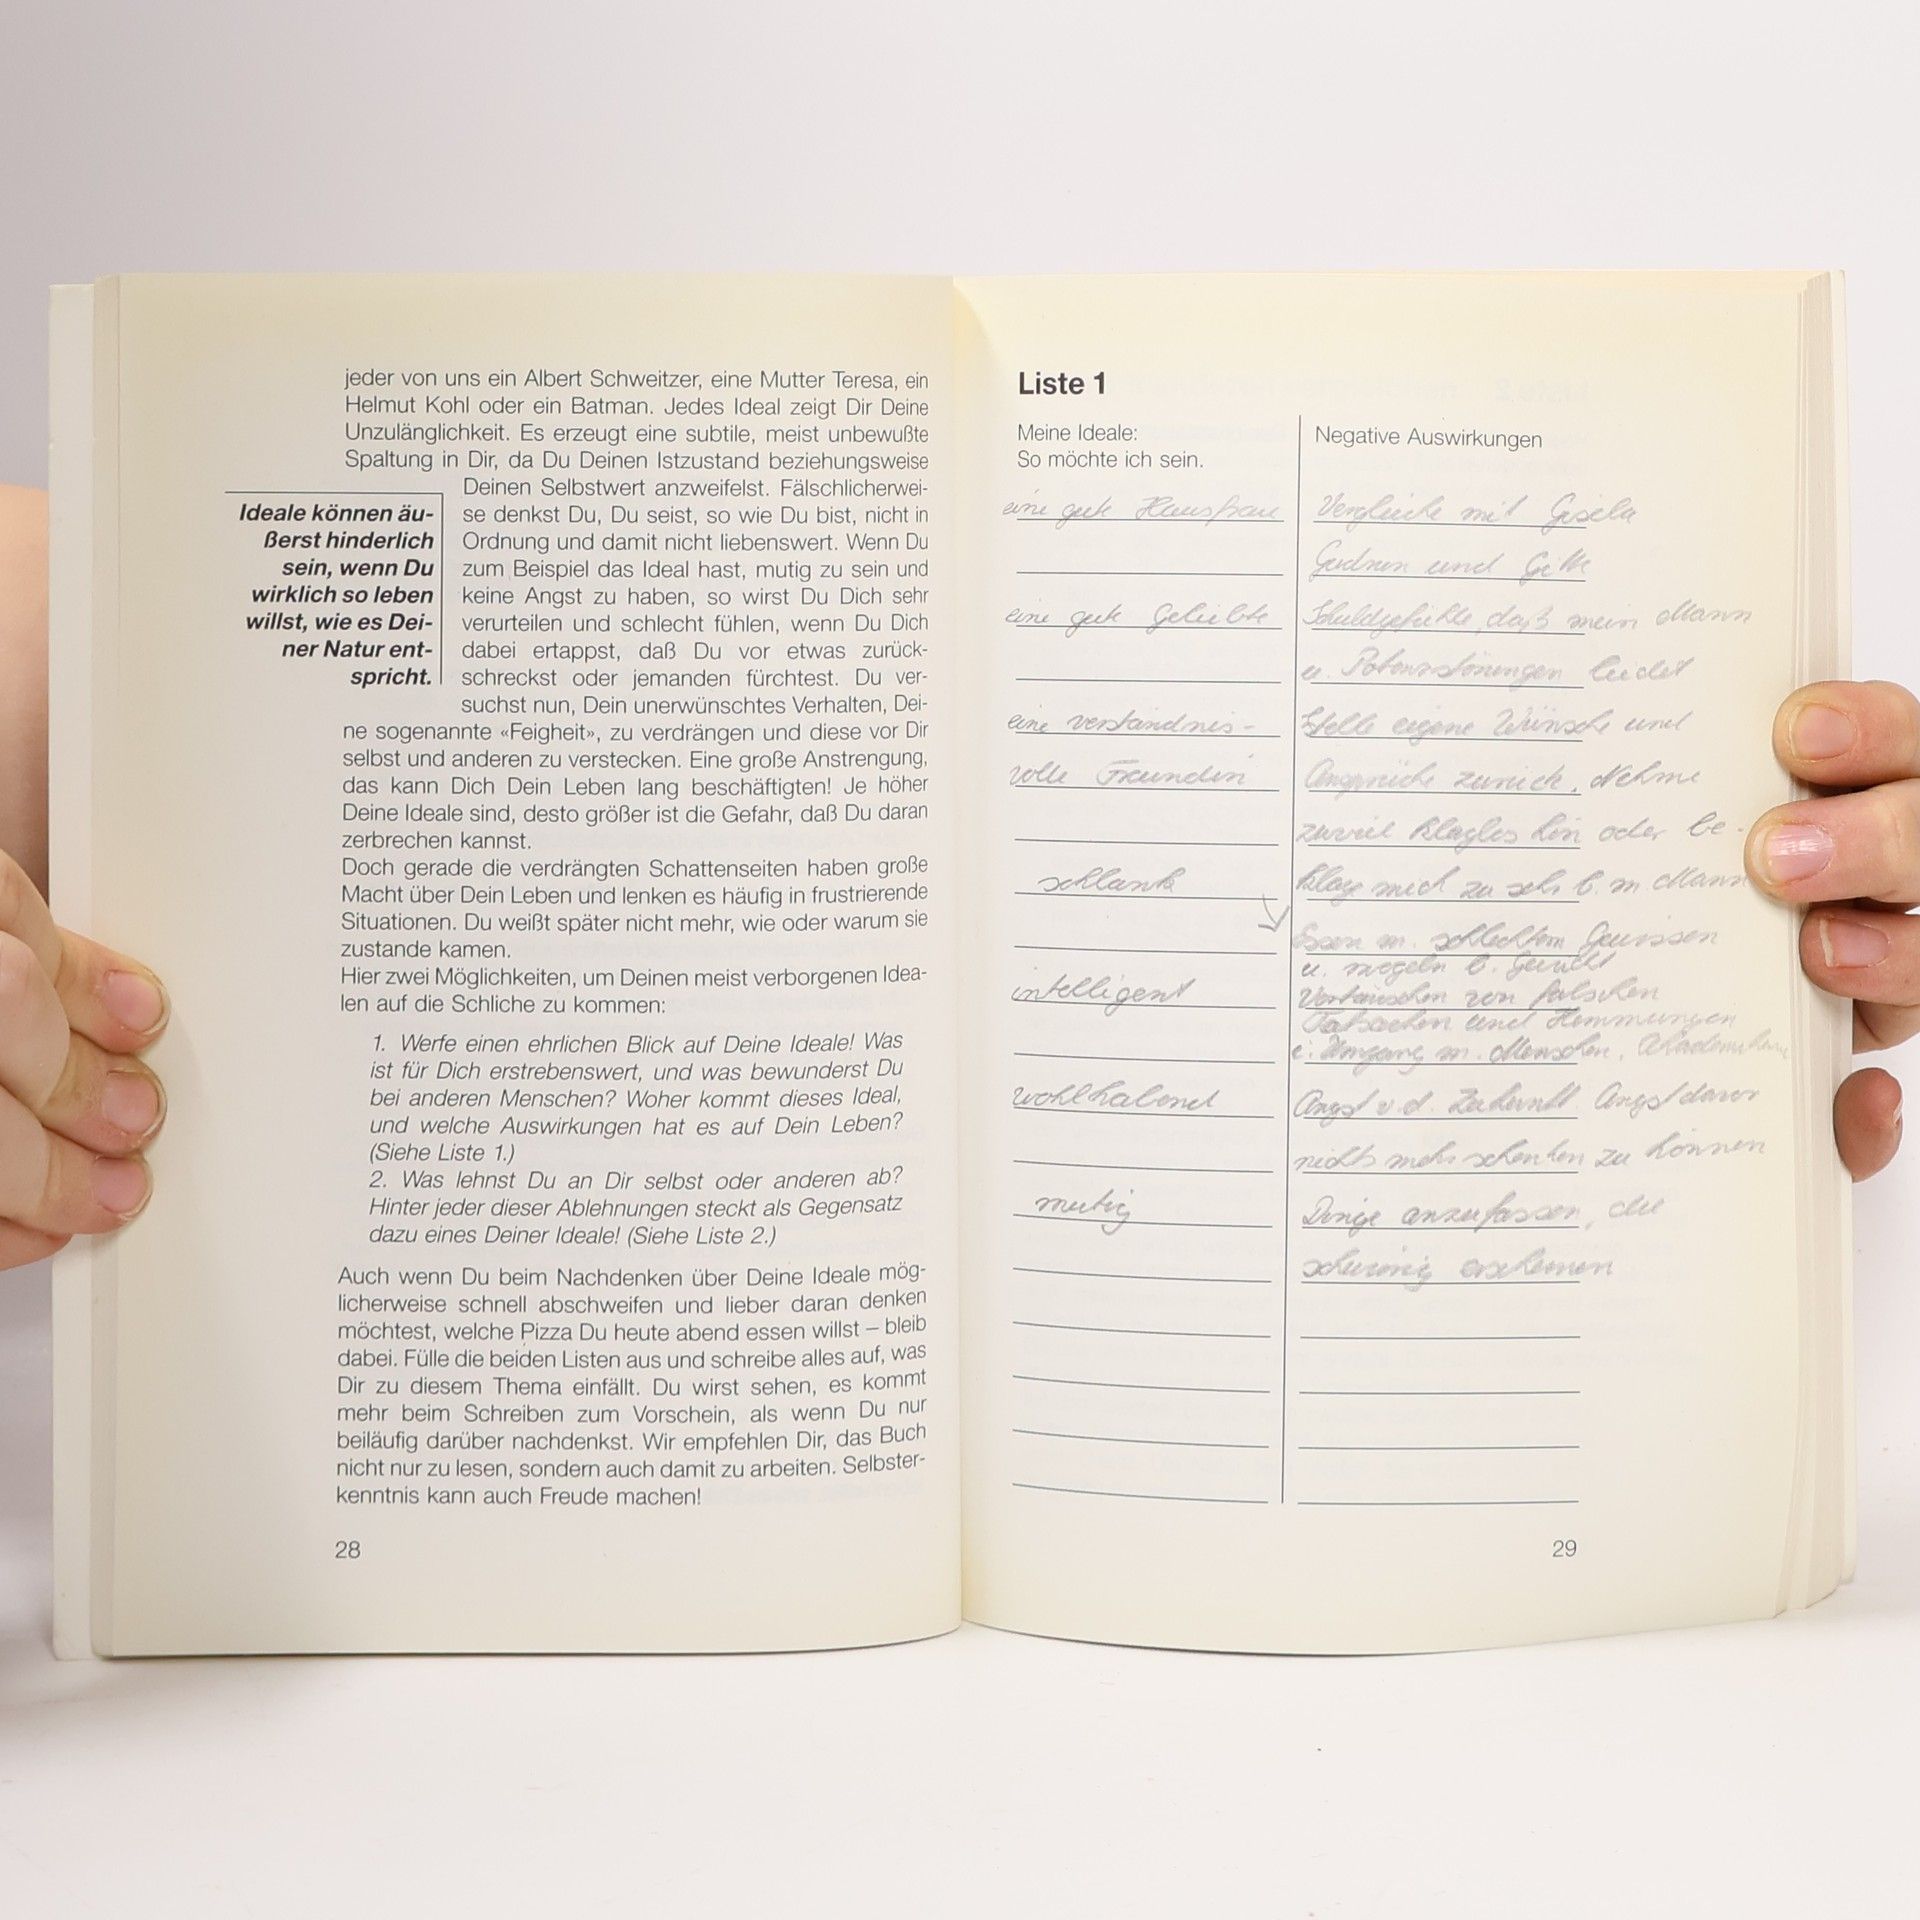 jeder von uns ein Albert Schweitzer, eine Mutter Teresa, ein
Helmut Kohl oder ein Batman. Jedes Ideal zeigt Dir Deine
Unzulänglichkeit. Es erzeugt eine subtile, meist unbewußte
Spaltung in Dir, da Du Deinen Istzustand beziehungsweise
Deinen Selbstwert anzweifelst. Fälschlicherwei-
se denkst Du, Du seist, so wie Du bist, nicht in
Ordnung und damit nicht liebenswert. Wenn Du
zum Beispiel das Ideal hast, mutig zu sein und
keine Angst zu haben, so wirst Du Dich sehr
verurteilen und schlecht fühlen, wenn Du Dich
dabei ertappst, daß Du vor etwas zurück-
schreckst oder jemanden fürchtest. Du ver-
suchst nun, Dein unerwünschtes Verhalten, Dei-
ne sogenannte «Feigheit», zu verdrängen und diese vor Dir
selbst und anderen zu verstecken. Eine große Anstrengung,
das kann Dich Dein Leben lang beschäftigten! Je höher
Deine Ideale sind, desto größer ist die Gefahr, daß Du daran
zerbrechen kannst.
Ideale können äu-
ßerst hinderlich
sein, wenn Du
wirklich so leben
willst, wie es Dei-
ner Natur ent-
spricht.
Doch gerade die verdrängten Schattenseiten haben große
Macht über Dein Leben und lenken es häufig in frustrierende
Situationen. Du weißt später nicht mehr, wie oder warum sie
zustande kamen.
Hier zwei Möglichkeiten, um Deinen meist verborgenen Idea-
len auf die Schliche zu kommen:
1. Werfe einen ehrlichen Blick auf Deine Ideale! Was
ist für Dich erstrebenswert, und was bewunderst Du
bei anderen Menschen? Woher kommt dieses Ideal,
und welche Auswirkungen hat es auf Dein Leben?
(Siehe Liste 1.)
2. Was lehnst Du an Dir selbst oder anderen ab?
Hinter jeder dieser Ablehnungen steckt als Gegensatz
dazu eines Deiner Ideale! (Siehe Liste 2.)
Auch wenn Du beim Nachdenken über Deine Ideale mög-
licherweise schnell abschweifen und lieber daran denken
möchtest, welche Pizza Du heute abend essen willst – bleib
dabei. Fülle die beiden Listen aus und schreibe alles auf, was
Dir zu diesem Thema einfällt. Du wirst sehen, es kommt
mehr beim Schreiben zum Vorschein, als wenn Du nur
beiläufig darüber nachdenkst. Wir empfehlen Dir, das Buch
nicht nur zu lesen, sondern auch damit zu arbeiten. Selbster-
kenntnis kann auch Freude machen!
28
Liste 1
Meine Ideale:
So möchte ich sein.
eine gute Hausfrau
eine gute Geliebte
eine verständnis-
volle Freundin
schlank
intelligent
wohlhabend
mutig
Negative Auswirkungen
Vergleiche mit Gisela
und
Schuldgefühle, daß mein Mann
u. Potenzstörungen leidet
Stelle eigene Wünsche und
Ansprüche zurück. Nehme
zuviel klaglos hin oder be-
klage mich zu sehr b. m Mann
Essen m. schlechtem Gewissen
Vortäuschen von falschen
Tatsachen und Hemmungen
i. Umgang m. Menschen,
Angst v. d. Zukunft Angst davor
nichts mehr schenken zu können
Dinge anzufassen, die
schwierig erscheinen
29